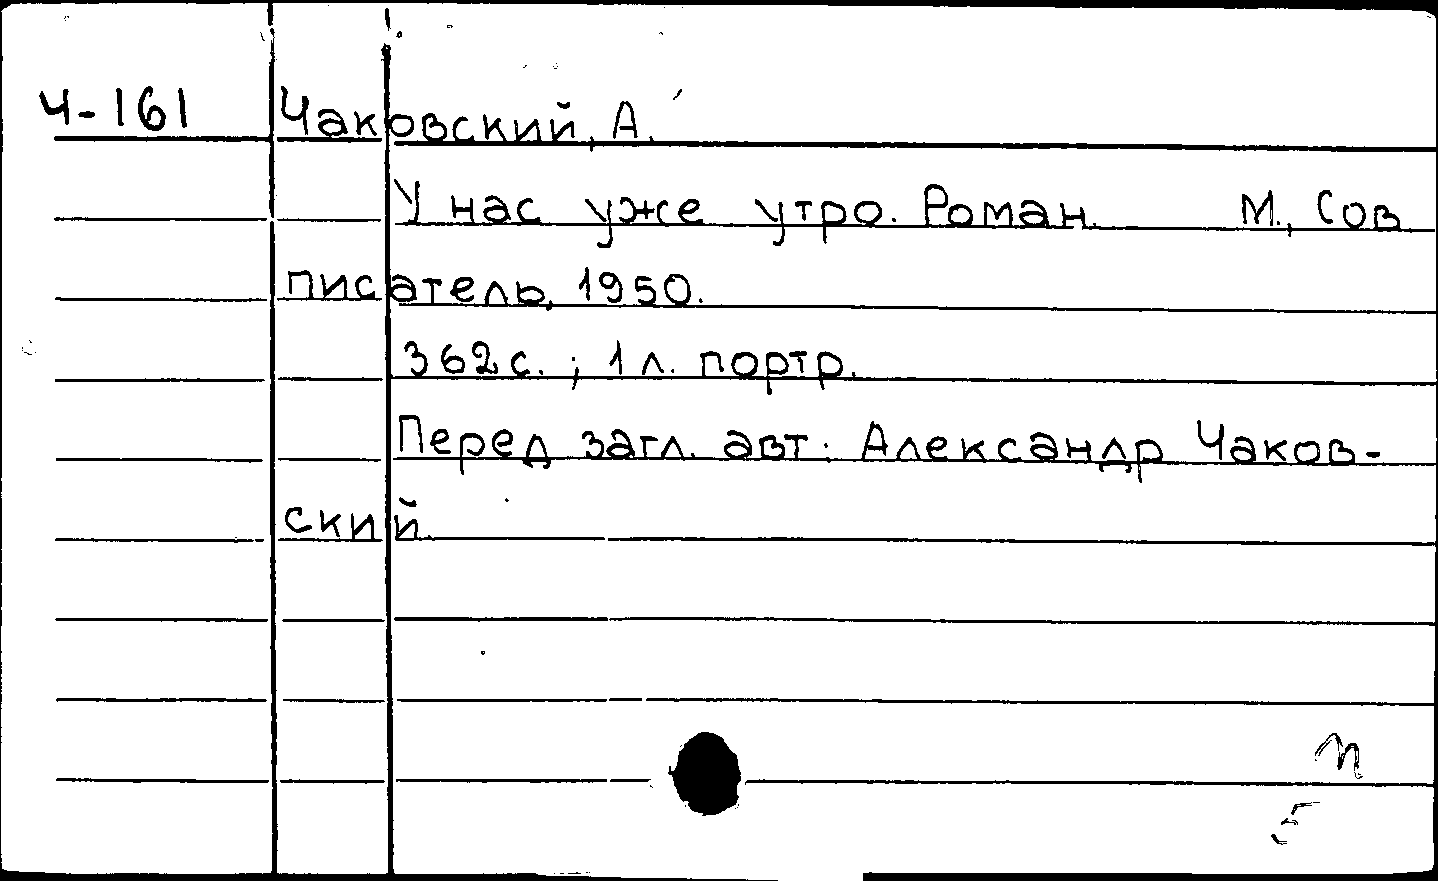 Ч-161 Чаковский, А.
У нас уже утро. Роман. М., Сов
писатель, 1950.
362с. ; 1 л. портр.
Перед загл. авт.: Александр Чаков-
ский.
п
5